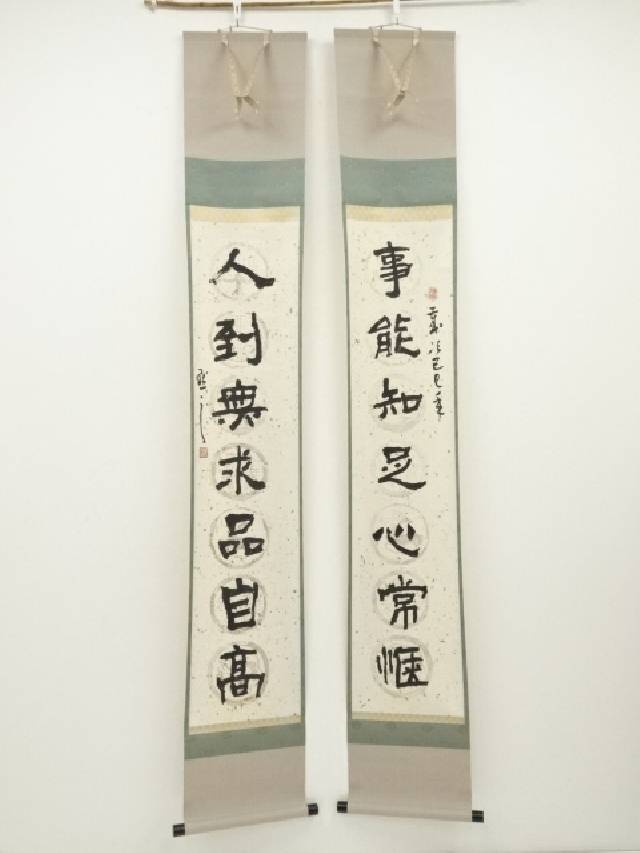 己巳年
事能知足心常愜
人到無求品自高